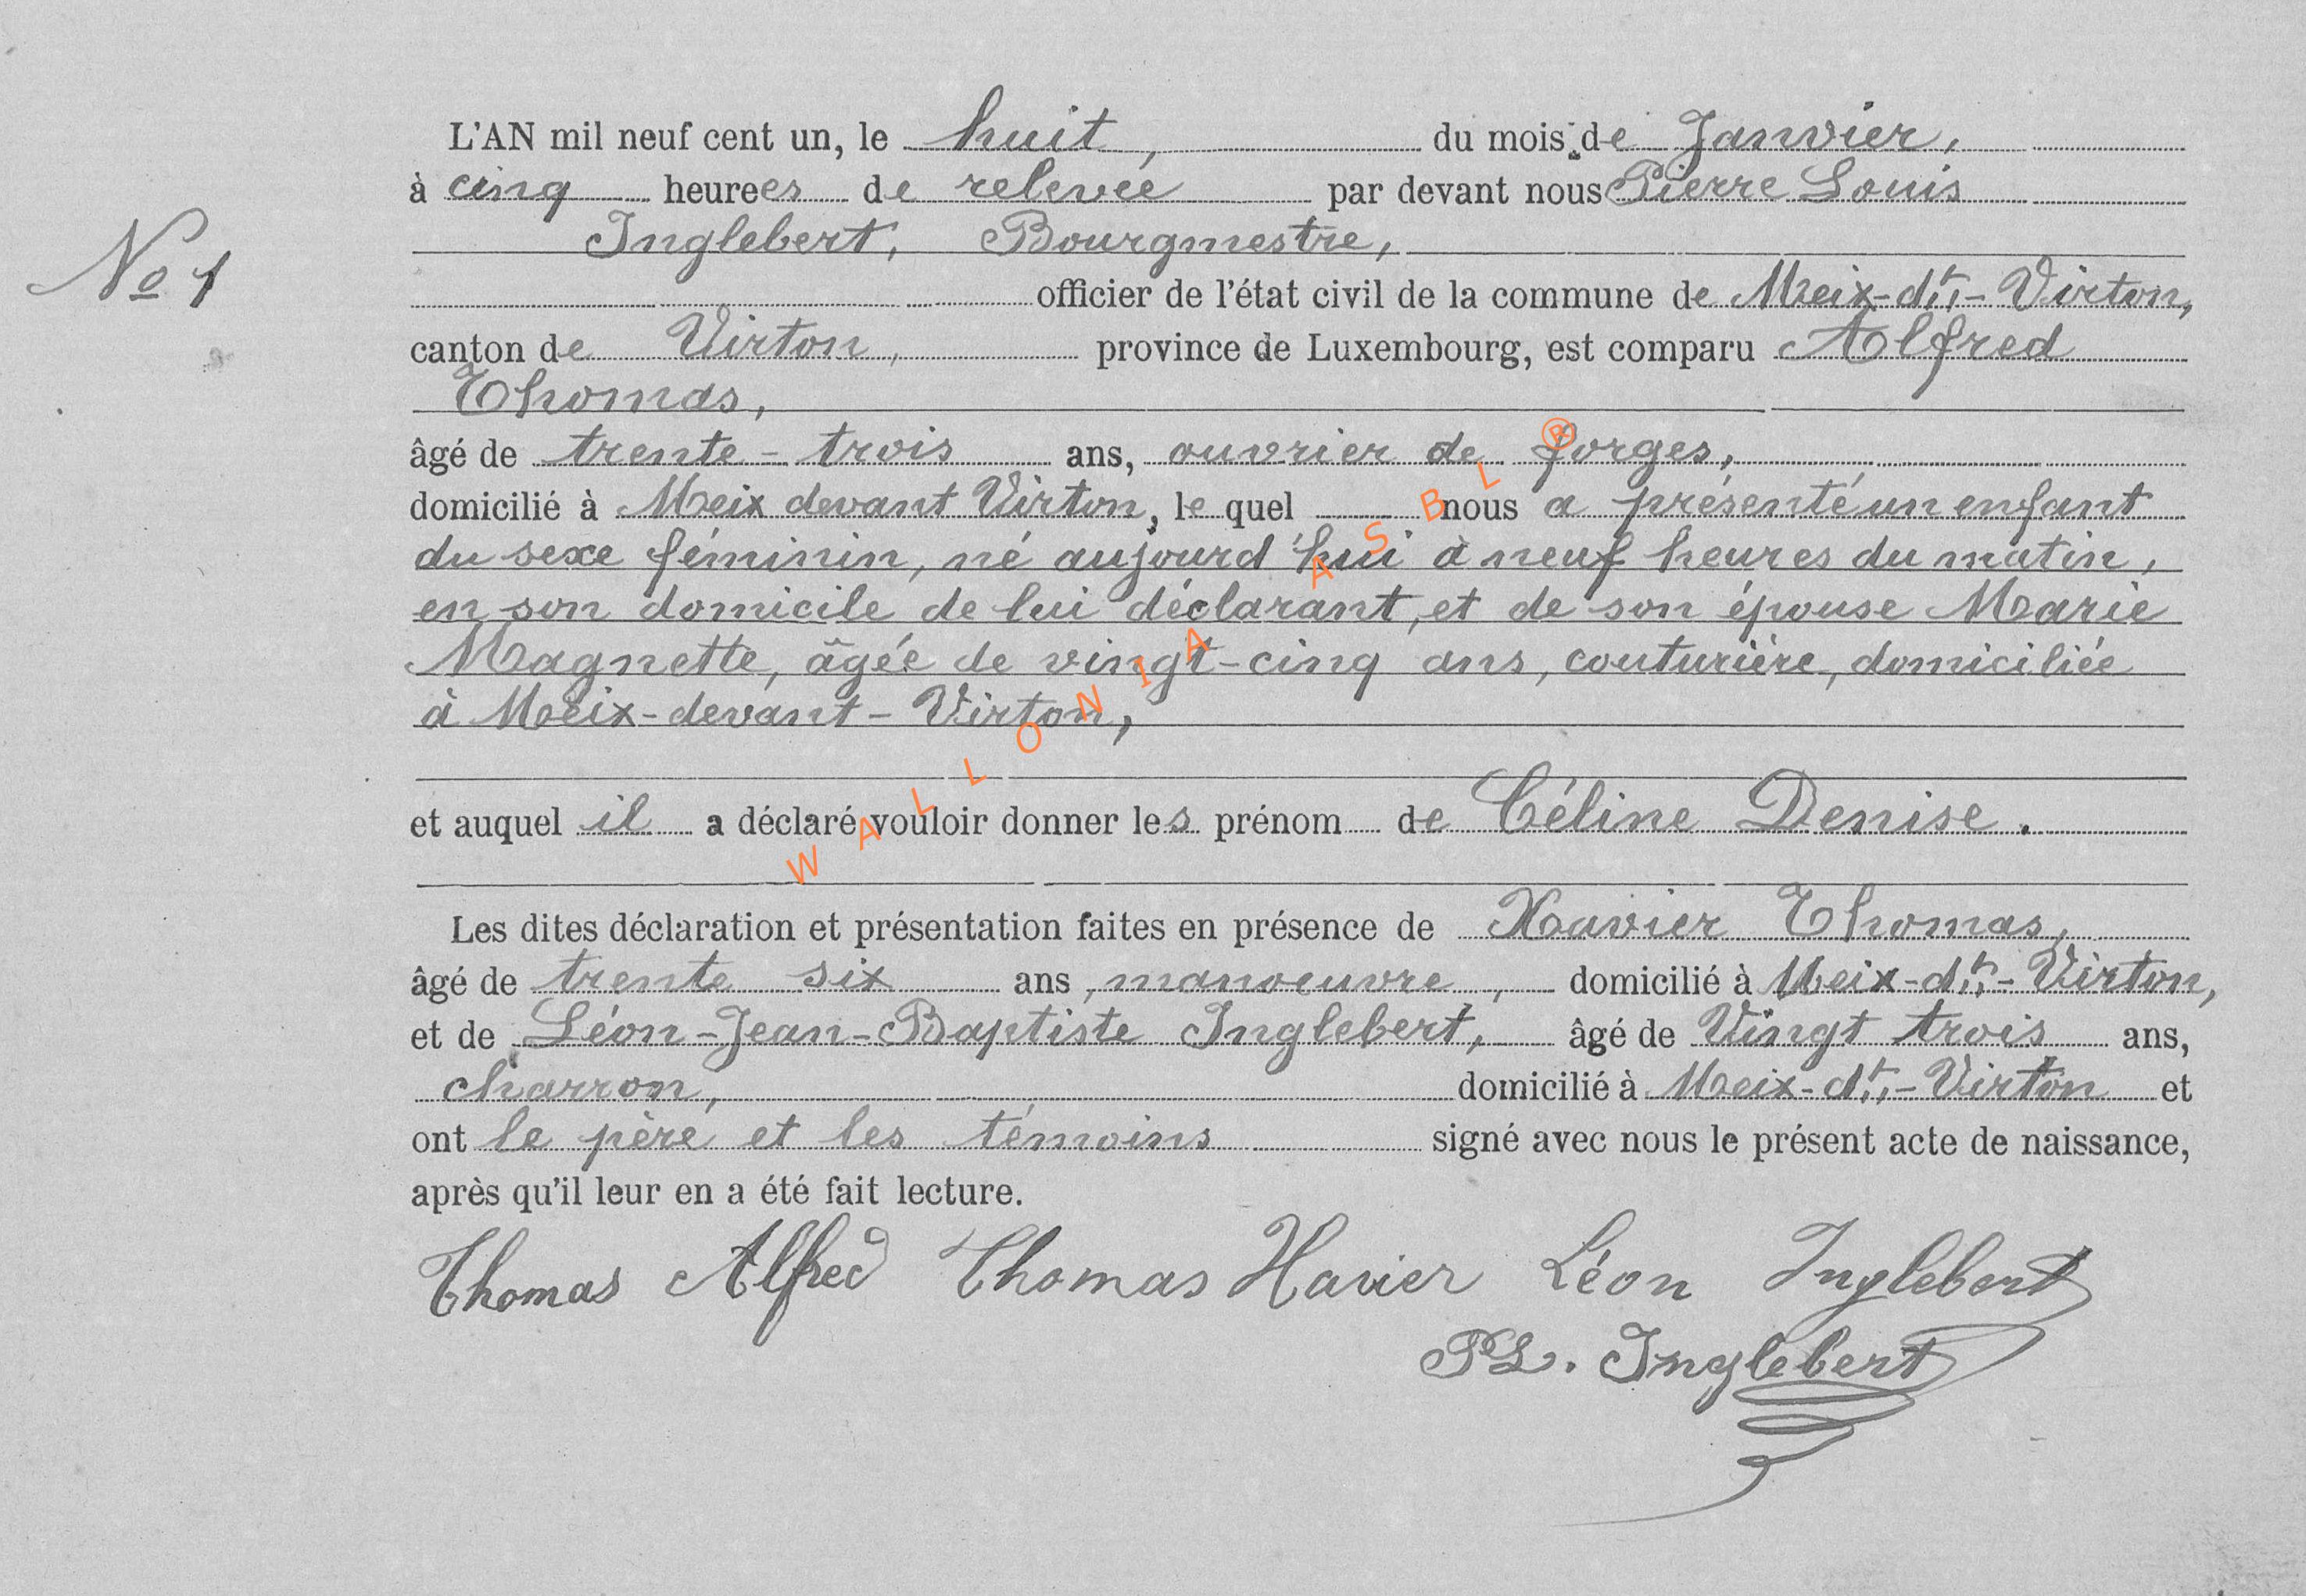 L'AN mil neuf cent un, le huit, du mois de Janvier,
à cinq heurees de relevée par devant nous Pierre Louis
Inglebert, Bourgmestre,
N° 1
officier de l'état civil de la commune de Meix-dt.-Virton,
canton de Virton, province de Luxembourg, est comparu Alfred
Thomas,
âgé de trente-trois ans, ouvrier de forges,
domicilié à Meix devant Virton, le quel nous a présenté un enfant
du sexe féminin, né aujourd'hui à neuf heures du matin,
en son domicile de lui déclarant, et de son épouse Marie
Magnette, âgée de vingt-cinq ans, couturière, domiciliée
à Meix-devant-Virton,
et auquel il a déclaré vouloir donner les prénom de Céline Denise.
Les dites déclaration et présentation faites en présence de Xavier Thomas,
âgé de trente six ans, manoeuvre, domicilié à Meix-dt.-Virton,
et de Léon-Jean-Baptiste Inglebert, âgé de Vingt trois ans,
charron, domicilié à Meix-dt.-Virton et
ont le père et les témoins signé avec nous le présent acte de naissance,
après qu'il leur en a été fait lecture.
Thomas Alfred Thomas Xavier Léon Inglebert
PL. Inglebert
WALLONIA ASBL ®